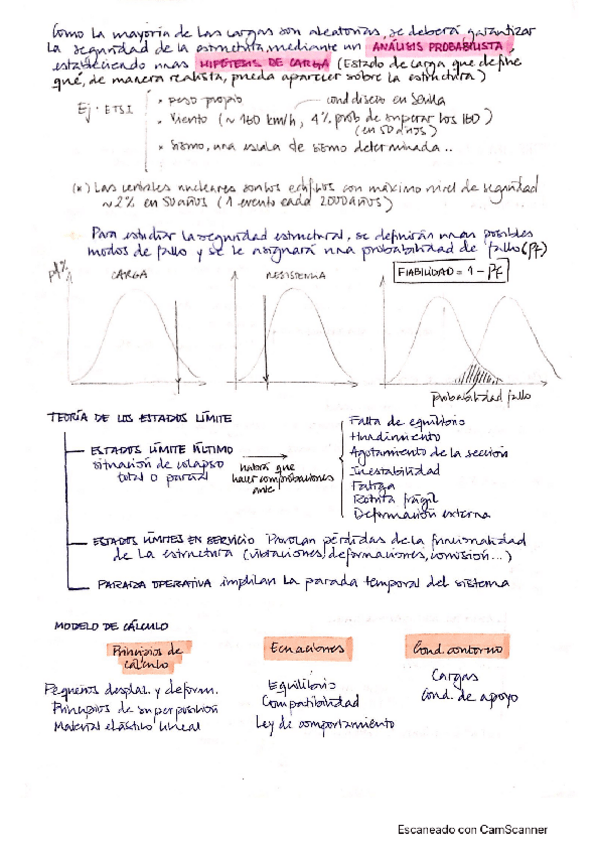 Como la mayoría de las cargas son aleatorias, se deberá garantizar
la seguridad de la estructura, mediante un ANÁLISIS PROBABILISTA,
estableciendo unas HIPÓTESIS DE CARGA (Estado de carga que define
qué, de manera realista, pueda aparecer sobre la estructura)
Ej. ETSI
* peso propio
cond diseño en Sevilla
* Viento (~ 160 km/h, 4% prob de superar los 160)
(en 50 años)
* Sismo, una escala de sismo determinada..
(*) Las centrales nucleares son los edificios con máximo nivel de seguridad
~2% en 50 años (1 evento cada 2000 años)
Para estudiar la seguridad estructural, se definirán unos posibles
modos de fallo y se le asignará una probabilidad de fallo (pf)
pf%
CARGA
RESISTENCIA
FIABILIDAD = 1 - Pf
probabilidad fallo
TEORÍA DE LOS ESTADOS LÍMITE
ESTADOS LÍMITE ÚLTIMO
situación de colapso
total o parcial
habrá que
hacer comprobaciones
ante
Falta de equilibrio
Hundimiento
Agotamiento de la sección
Inestabilidad
Fatiga
Rotura frágil
Deformación externa
ESTADOS LÍMITES EN SERVICIO Provocan pérdidas de la funcionalidad
de la estructura (vibraciones, deformaciones, corrosión...)
PARADA OPERATIVA implican la parada temporal del sistema
MODELO DE CÁLCULO
Principios de
cálculo
Pequeños desplaz. y deform.
Principios de superposición
Material elástico lineal
Ecuaciones
Equilibrio
Compatibilidad
Ley de comportamiento
Cond. contorno
Cargas
Cond. de apoyo
Escaneado con CamScanner